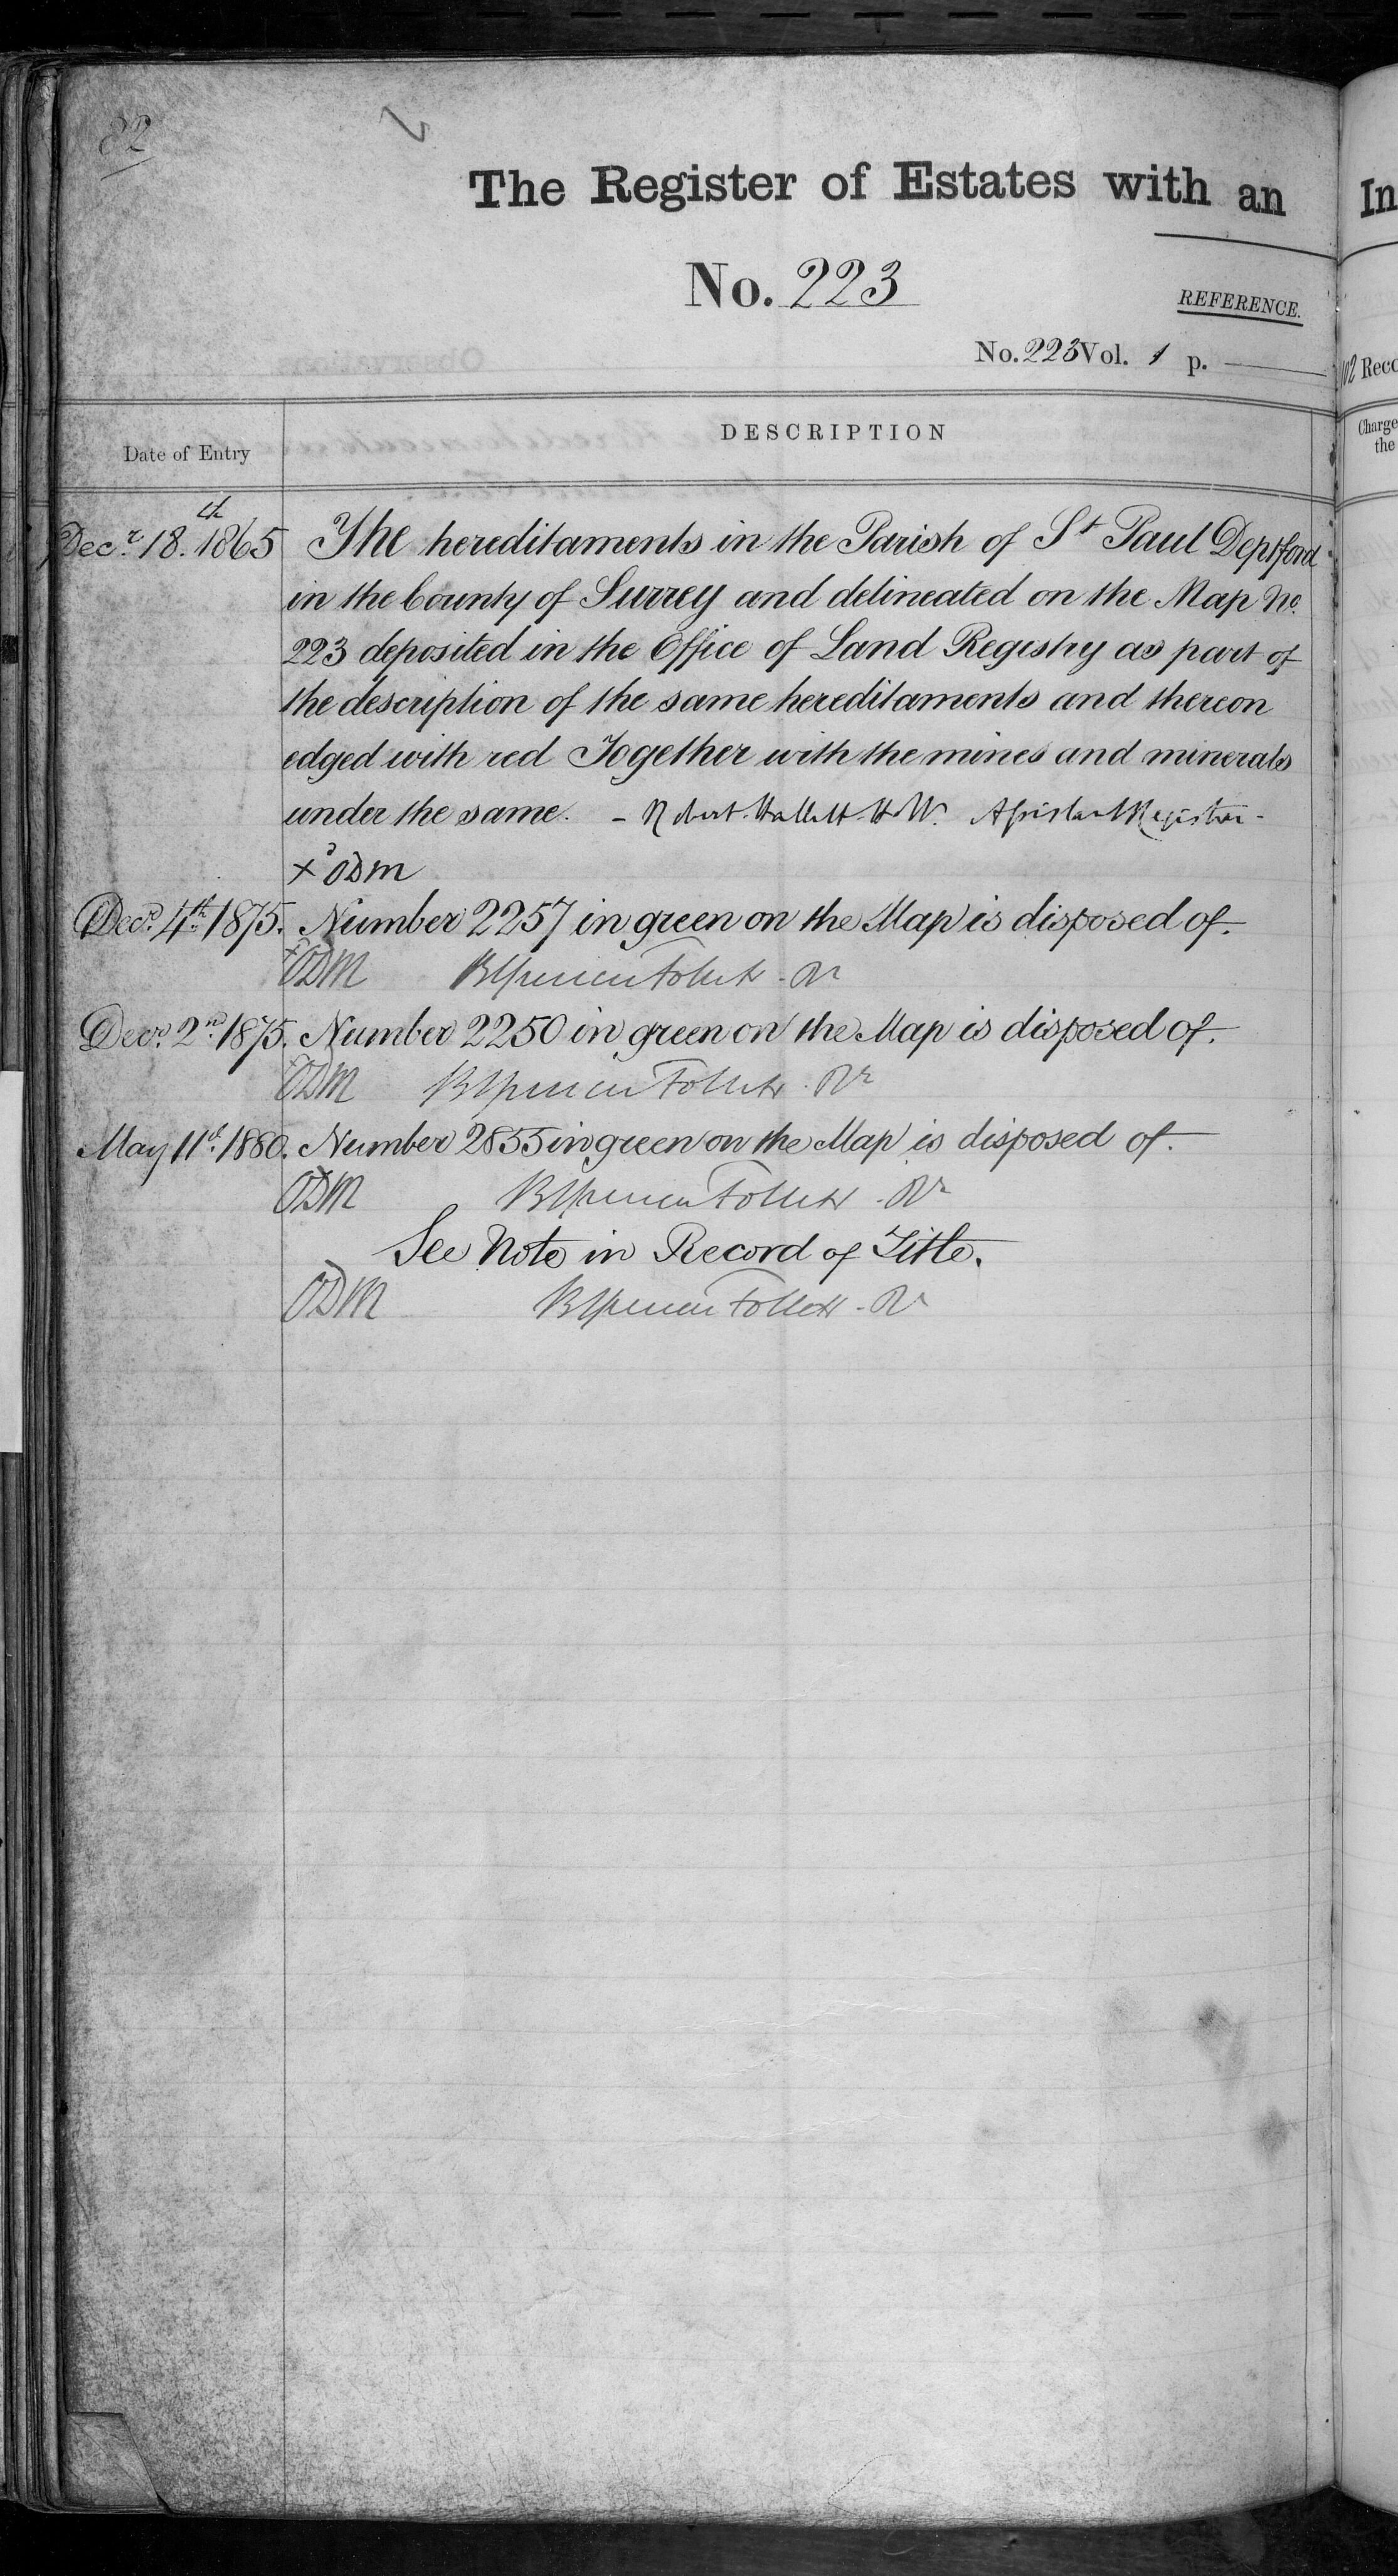 82
The Register of Estates with an
No. 223
REFERENCE.
No. 223 Vol. 1 p.
Date of Entry
DESCRIPTION
Decr. 18th. 1865 The hereditaments in the Parish of St Paul Deptford
in the County of Surrey and delineated on the Map No.
223 deposited in the Office of Land Registry as part of
the description of the same hereditaments and thereon
edged with red Together with the mines and minerals
under the same. - Robert Hallett Holt. Assistant Registrar -
x ODM
Decr. 4th. 1875. Number 2257 in green on the Map is disposed of.
ODM Follett - Rr
Decr. 2nd. 1875. Number 2250 in green on the Map is disposed of.
ODM Follett - Rr
May 11th. 1880. Number 2855 in green on the Map is disposed of.
ODM Follett - Rr
See Note in Record of Title.
ODM Follett - Rr
In
102 Reco
Charge
the